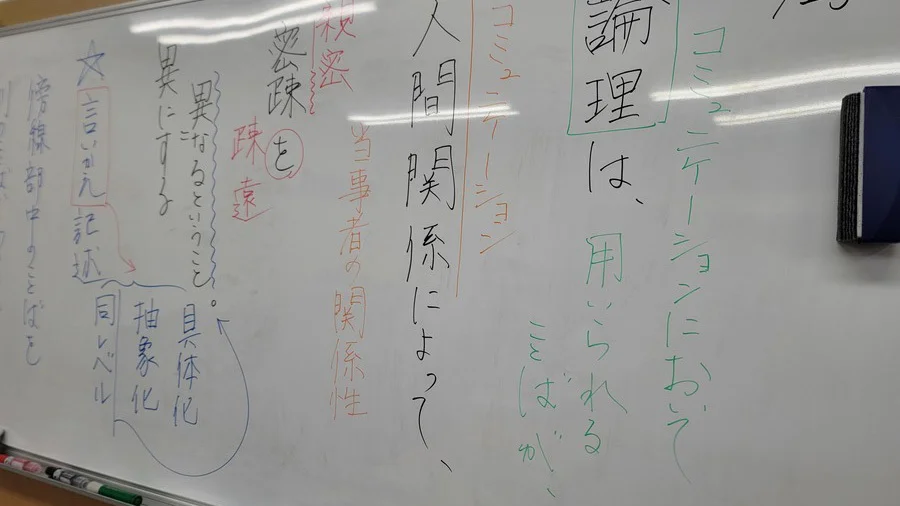 コミュニケーションにおいて
論理は、
用いられる
ことばが、
コミュニケーション
人間関係によって、
当事者の関係性
親密
密疎を
疎遠
異なるということ。
異にする
☆言いかえ記述
具体化
抽象化
同レベル
傍線部中のことばを